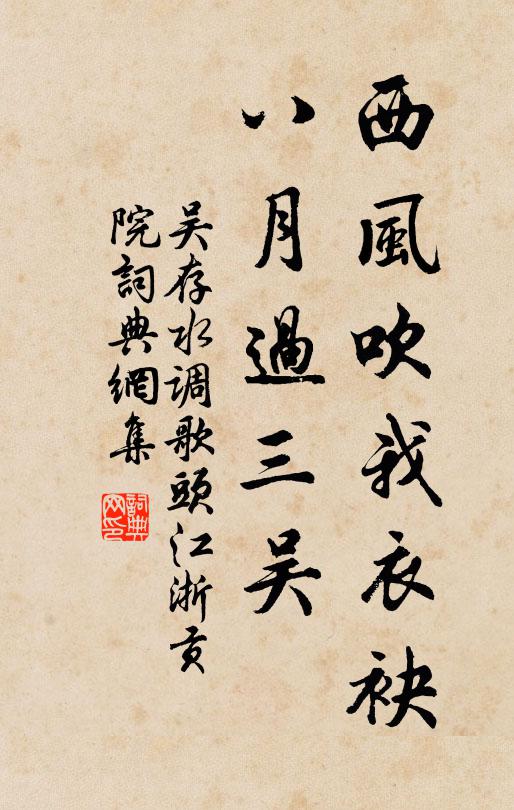 西風吹我衣袂
八月過三吴
吴存水调歌頭江浙貢
院詞典網集
詞典網印